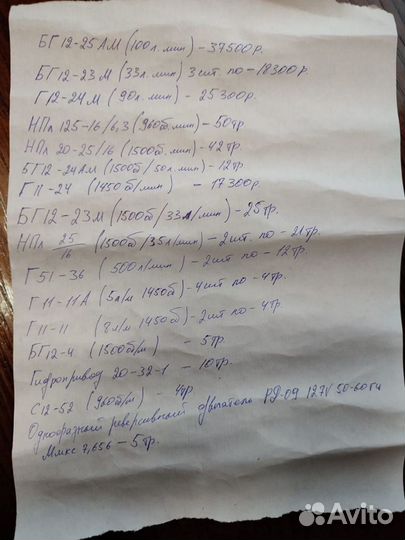 БГ12-25АМ (100л.мин) - 37500р.
БГ12-23М (33л.мин) 3 шт. по - 18300р.
Г12-24М (90л.мин) - 25300р.
НПл 125-16/6,3 (960об.мин) - 50тр
НПл 20-25/16 (1500об.мин) - 42тр.
БГ12-24АМ (1500б/50л.мин) - 12тр.
Г11-24 (1450б/мин) - 17300р.
БГ12-23М (1500б/33л/мин) - 25тр.
НПл 25/16 (1500б/35л/мин) - 2шт. по - 21тр.
Г51-36 (500л/мин) - 2шт по - 12тр.
Г11-11А (5л/м 1450б) - 4шт по - 4тр.
Г11-11 (8л/м 1450б) - 2шт по - 4тр.
БГ12-4 (1500б/м) - 5тр.
Гидропривод 20-32-1 - 10тр.
С12-52 (960б/м) - 4тр
Однофазный реверсивный двигатель РД-09 127V 50-60гц
7,656 - 5тр.
Avito